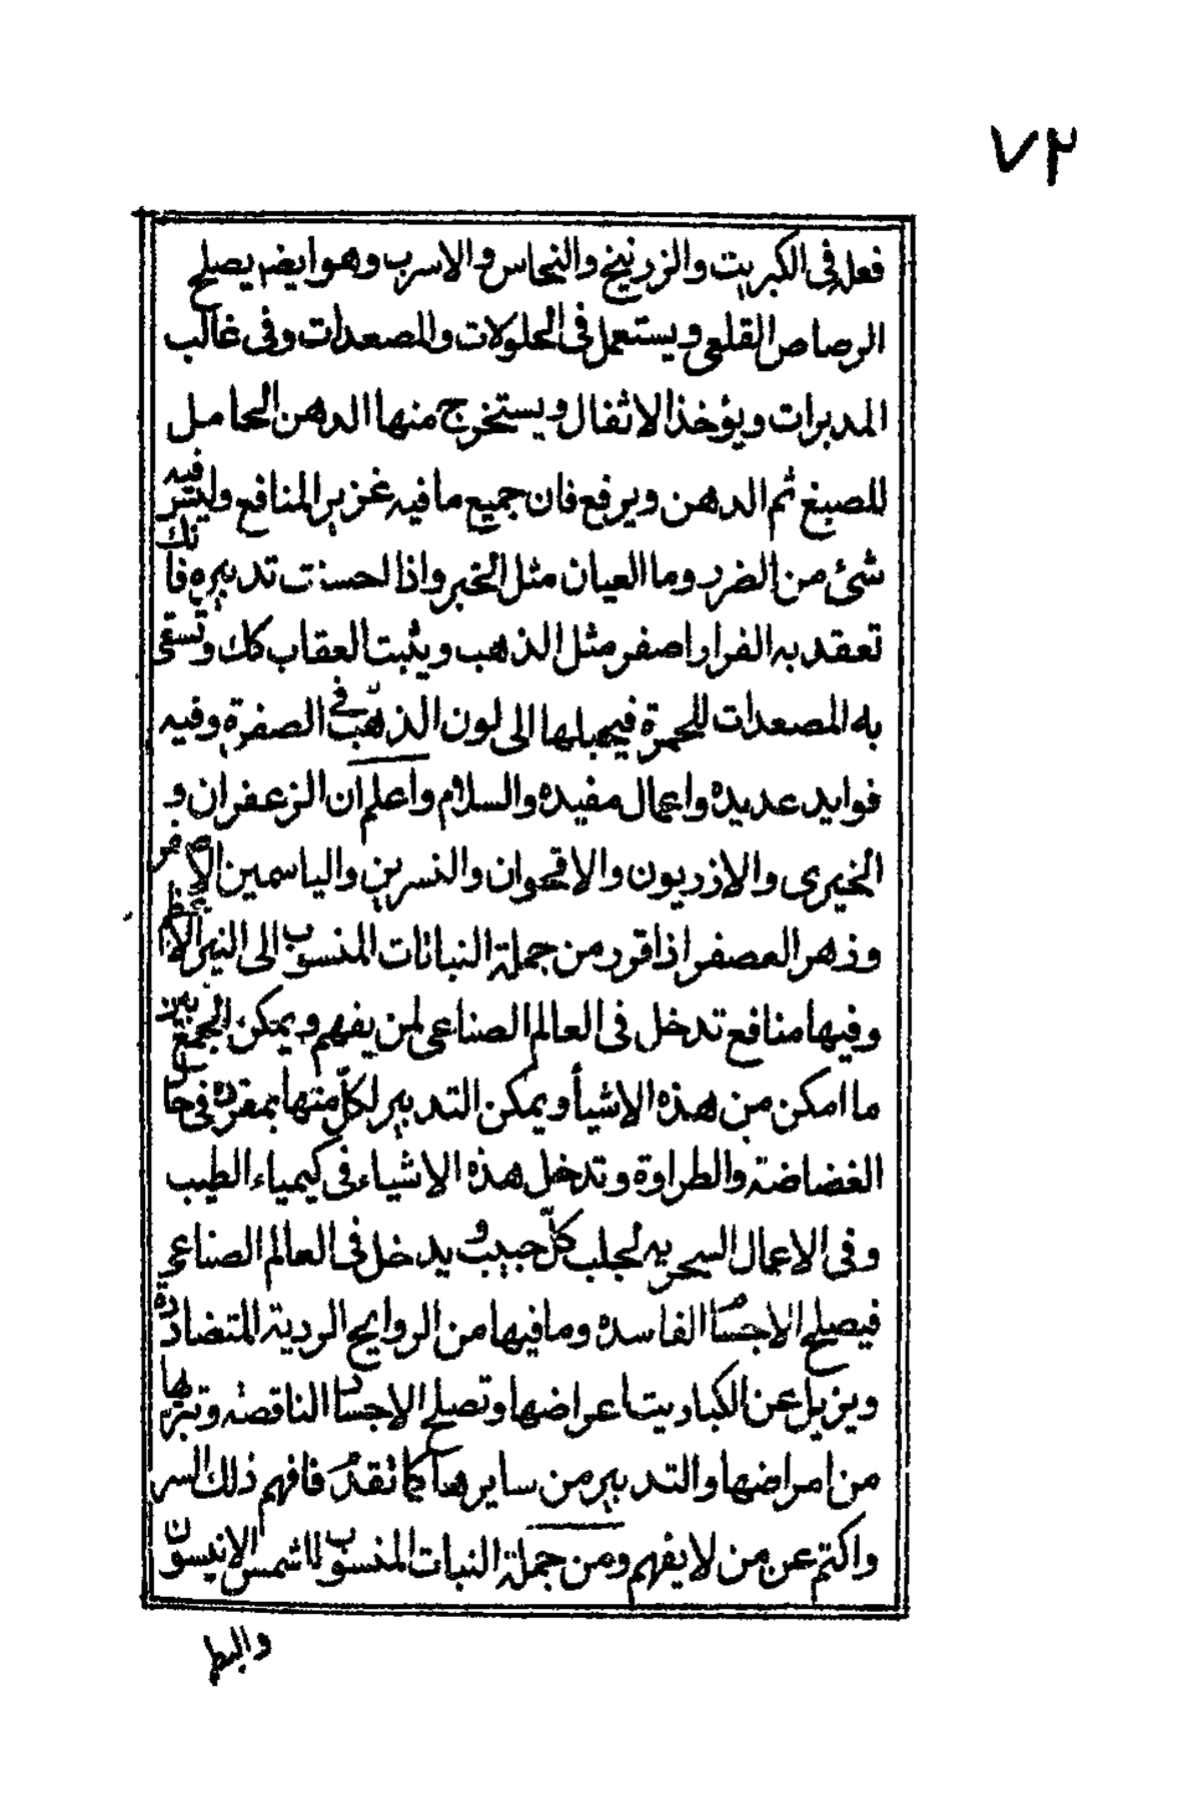 ٧٢
فعله فى الكبريت والزرنيخ والنحاس والاسرب وهو ايضه يصلح
الرصاص القلعى ويستعمل فى المحلولات والمصعدات وفى غالب
المدبرات ويؤخذ الاثفال ويستخرج منها الدهن الحامل
للصبغ ثم الدهن ويرفع فان جميع ما فيه غزير المنافع وليس فيه
شئ من الضرر وما العيان مثل الخبر واذا احسنت تدبيره فانك
تعقد به الفرار اصفر مثل الذهب ويثبت العقاب كك وتسقى
به المصعدات للحمرة فيحيلها الى لون الذهب فى الصفرة وفيه
فوايد عديده واعمال مفيده والسلام واعلم ان الزعفران و
الخيرى والاذريون والاقحوان والنسرين والياسمين الاصفر
وزهر العصفر اذا قرر من جملة النباتات المنسوب الى النير الاعظم
وفيها منافع تدخل فى العالم الصناعى لمن يفهم ويمكن الجمع بين
ما امكن من هذه الاشيأ ويمكن التدبير لكلّ منها بمفرده فى حال
الغضاضة والطراوة وتدخل هذه الاشياء فى كيمياء الطيب
وفى الاعمال السحريه لجلب كلّ حبيب ويدخل فى العالم الصناعى
فيصلح الاجسام الفاسده وما فيها من الروايح الردية المتضادة
ويزيل عن الكباريت اعراضها وتصلح الاجساد الناقصة وتبريها
من امراضها والتدبير من سايرها كما تقدم فافهم ذلك السر
واكتم عن من لا يفهم ومن جملة النبات المنسوب للشمس الانيسون